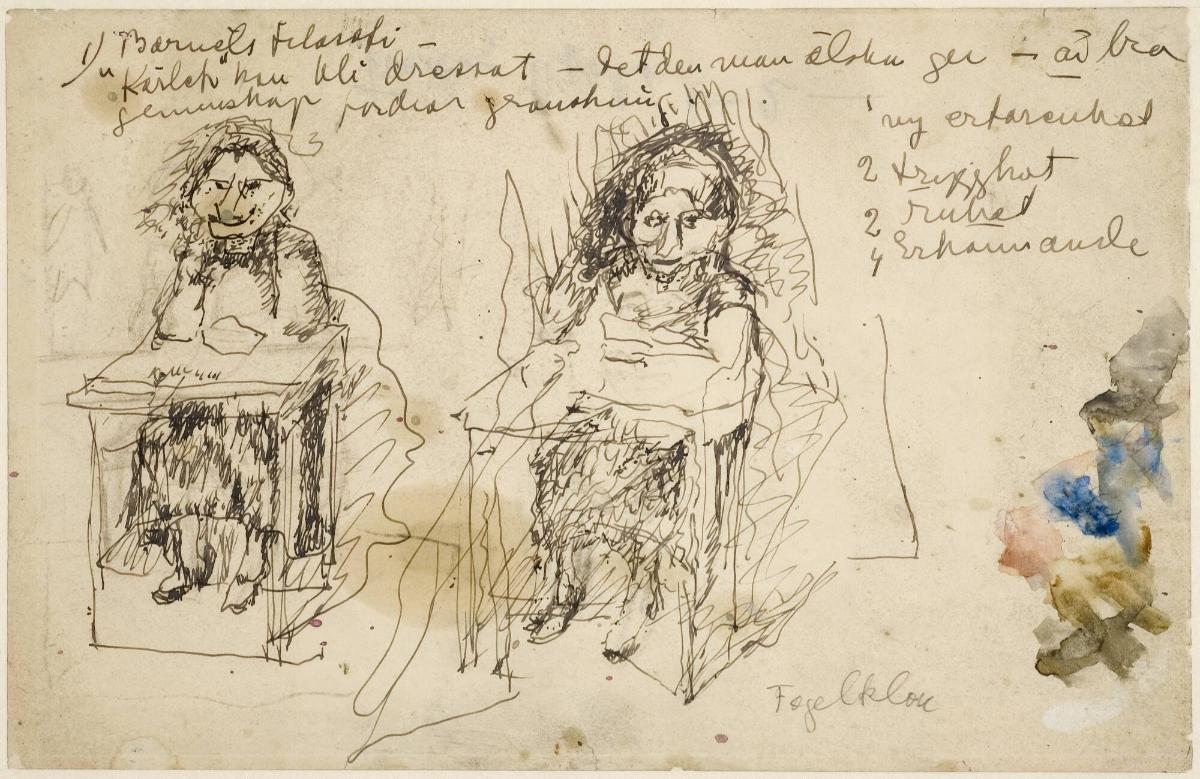 1) Barnets filosofi –
"Kärlek" kan bli dressat – det den man älska ger – av bra
gemenskap fordrar granskning
1 ny erfarenhet
2 trygghet
2
4 Erkännande
Fogelklou